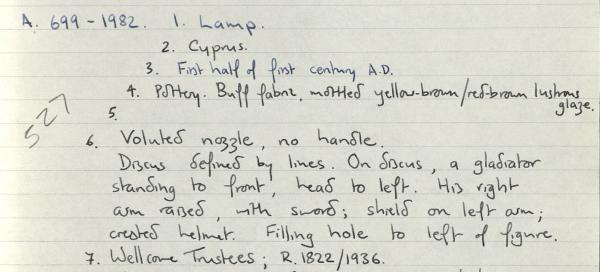 A. 699-1982. 1. Lamp.
2. Cyprus.
3. First half of first century A.D.
4. Pottery. Buff fabric, mottled yellow-brown/red-brown lustrous glaze.
527
5.
6. Voluted nozzle, no handle.
Discus defined by lines. On discus, a gladiator
standing to front, head to left. His right
arm raised, with sword; shield on left arm;
crested helmet. Filling hole to left of figure.
7. Wellcome Trustees; R.1822/1936.